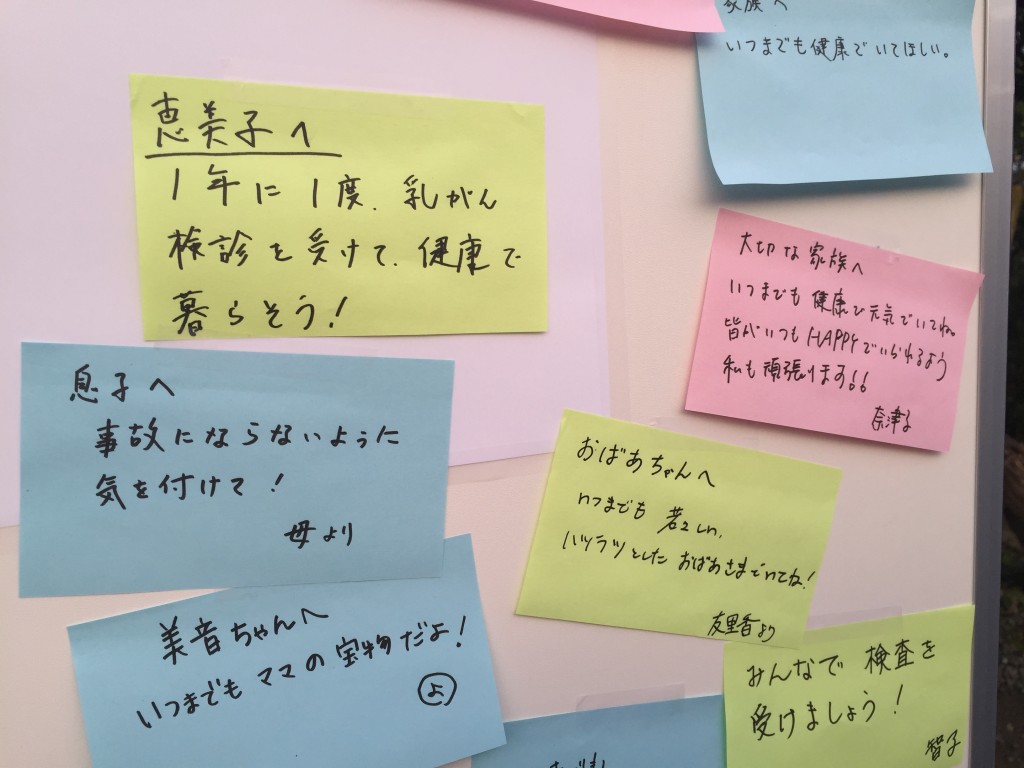 恵美子へ
1年に1度、乳がん
検診を受けて、健康で
暮らそう!
家族へ
いつまでも健康でいてほしい。
大切な家族へ
いつまでも健康で元気でいてね。
皆がいつもHAPPYでいられるよう
私も頑張ります!!
奈津子
息子へ
事故にならないように
気を付けて!
母より
おばあちゃんへ
いつまでも若々しい、
ハツラツとした おばあさまでいてね!
友里香より
美音ちゃんへ
いつまでもママの宝物だよ!
よ
みんなで検査を
受けましょう!
智子